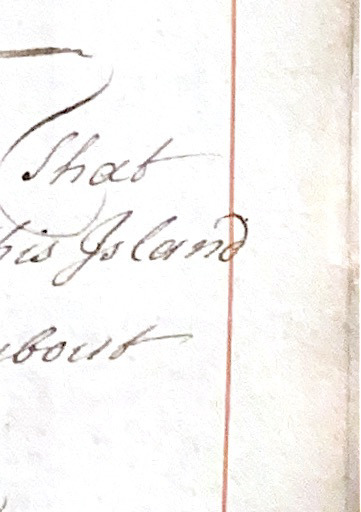 That
his Island
about